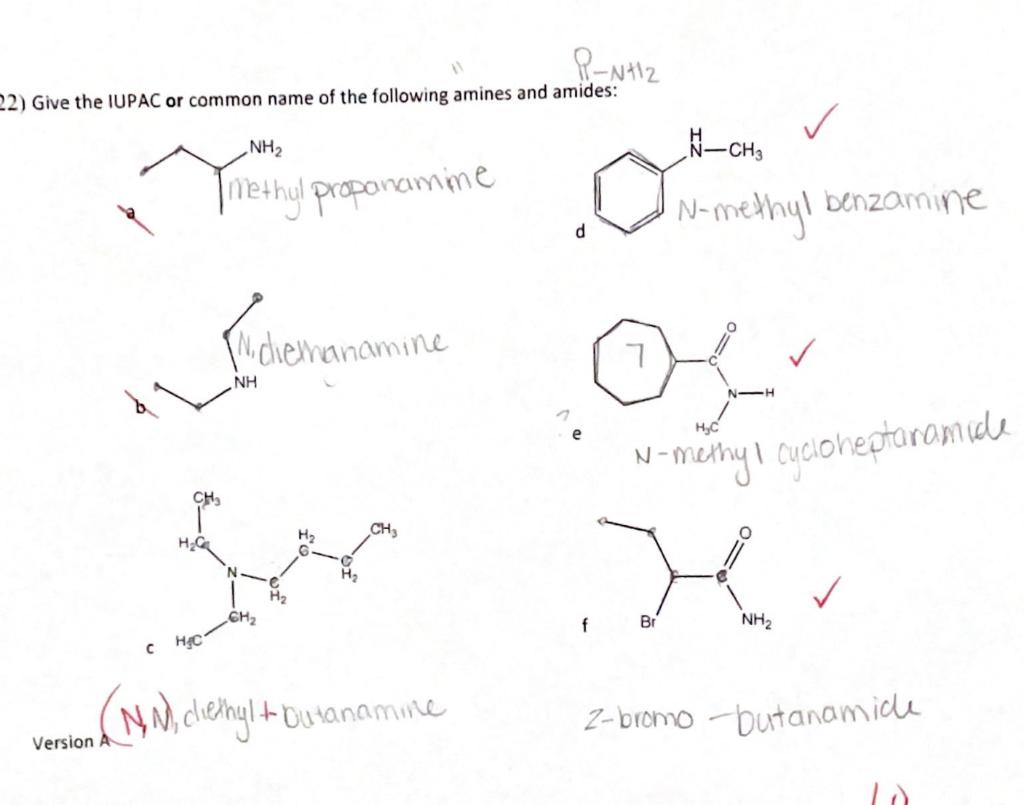 R-NH2
22) Give the IUPAC or common name of the following amines and amides:
NH₂
Methyl propanamine
a
H
N-CH₃
N-methyl benzamine
d
N, diethanamine
NH
b
7
O
C
N-H
H₃C
e
N-methyl cycloheptanamide
CH₃
H₂C
N
C
H₂
H₂
C
C
H₂
CH₃
CH₂
H₃C
c
(N,N), diethyl + butanamine
O
Br
NH₂
f
2-bromo -butanamide
Version A